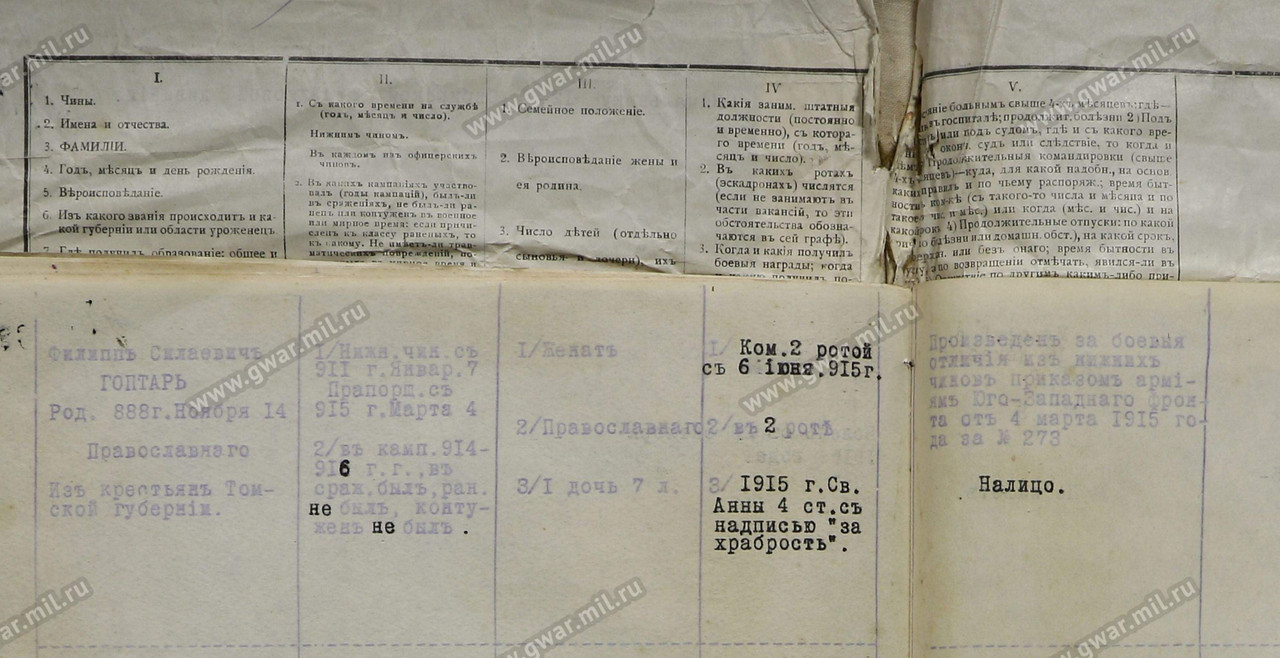 I.
1. Чины.
2. Имена и отчества.
3. ФАМИЛІИ.
4. Годъ, мѣсяцъ и день рожденія.
5. Вѣроисповѣданіе.
6. Изъ какого званія происходитъ и ка-
кой губерніи или области уроженецъ.
7. Гдѣ получилъ образованіе: общее и
II.
1. Съ какого времени на службѣ
(годъ, мѣсяцъ и число).
Нижнимъ чиномъ.
Въ каждомъ изъ офицерскихъ
чиновъ.
2. Въ какихъ кампаніяхъ участво-
валъ (годы кампаній), былъ-ли
въ сраженіяхъ, не былъ-ли ра-
ненъ или контуженъ въ военное
или мирное время; если причи-
сленъ къ классу раненыхъ, то
къ какому. Не имѣетъ-ли трав-
матическихъ поврежденій, по-
мирное время и
III.
1. Семейное положеніе.
2. Вѣроисповѣданіе жены и
ея родина.
3. Число дѣтей (отдѣльно
сыновья и дочери), ихъ
IV
1. Какія заним. штатныя
должности (постоянно
и временно), съ котора-
го времени (годъ, мѣ-
сяцъ и число).
2. Въ какихъ ротахъ
(эскадронахъ) числятся
(если не занимаютъ въ
части вакансій, то эти
обстоятельства обозна-
чаются въ сей графѣ).
3. Когда и какія получилъ
боевыя награды; когда
получилъ по-
V.
больнымъ свыше 4-хъ мѣсяцевъ: гдѣ—
въ госпиталѣ; продолжит. болѣзни 2) Подъ
или подъ судомъ, гдѣ и съ какого вре-
оконч. судъ или слѣдствіе, то когда и
Продолжительныя командировки (свыше
—куда, для какой надобн., на основ.
правилъ и по чьему распоряж.; время быт-
(съ такого-то числа и мѣсяца и по
чис. и мѣс.) или когда (мѣс. и чис.) и на
4) Продолжительные отпуски: по какой
болѣзни или домашн. обст.), на какой срокъ,
или безъ онаго; время бытности въ
по возвращеніи отмѣчать, явился-ли въ
по другимъ какимъ-либо при-
Филиппъ Силаевичъ
ГОПТАРЬ
Род. 888г.Ноября 14
Православнаго
Изъ крестьянъ Том-
ской губерніи.
1/Нижн.чин.съ
911 г.Январ.7
Прапорщ.съ
915 г.Марта 4
2/въ камп.914-
916 г.г.,въ
сраж.былъ,ран.
не былъ, конту-
женъ не былъ .
1/Женатъ
2/Православнаго
3/1 дочь 7 л.
1/ Ком.2 ротой
съ 6 іюня.915г.
2/въ 2 ротѣ
3/ 1915 г.Св.
Анны 4 ст.съ
надписью "за
храбрость".
Произведенъ за боевыя
отличія изъ нижнихъ
чиновъ приказомъ армі-
ямъ Юго-Западнаго фрон-
та отъ 4 марта 1915 го-
да за № 273
Налицо.
www.gwar.mil.ru